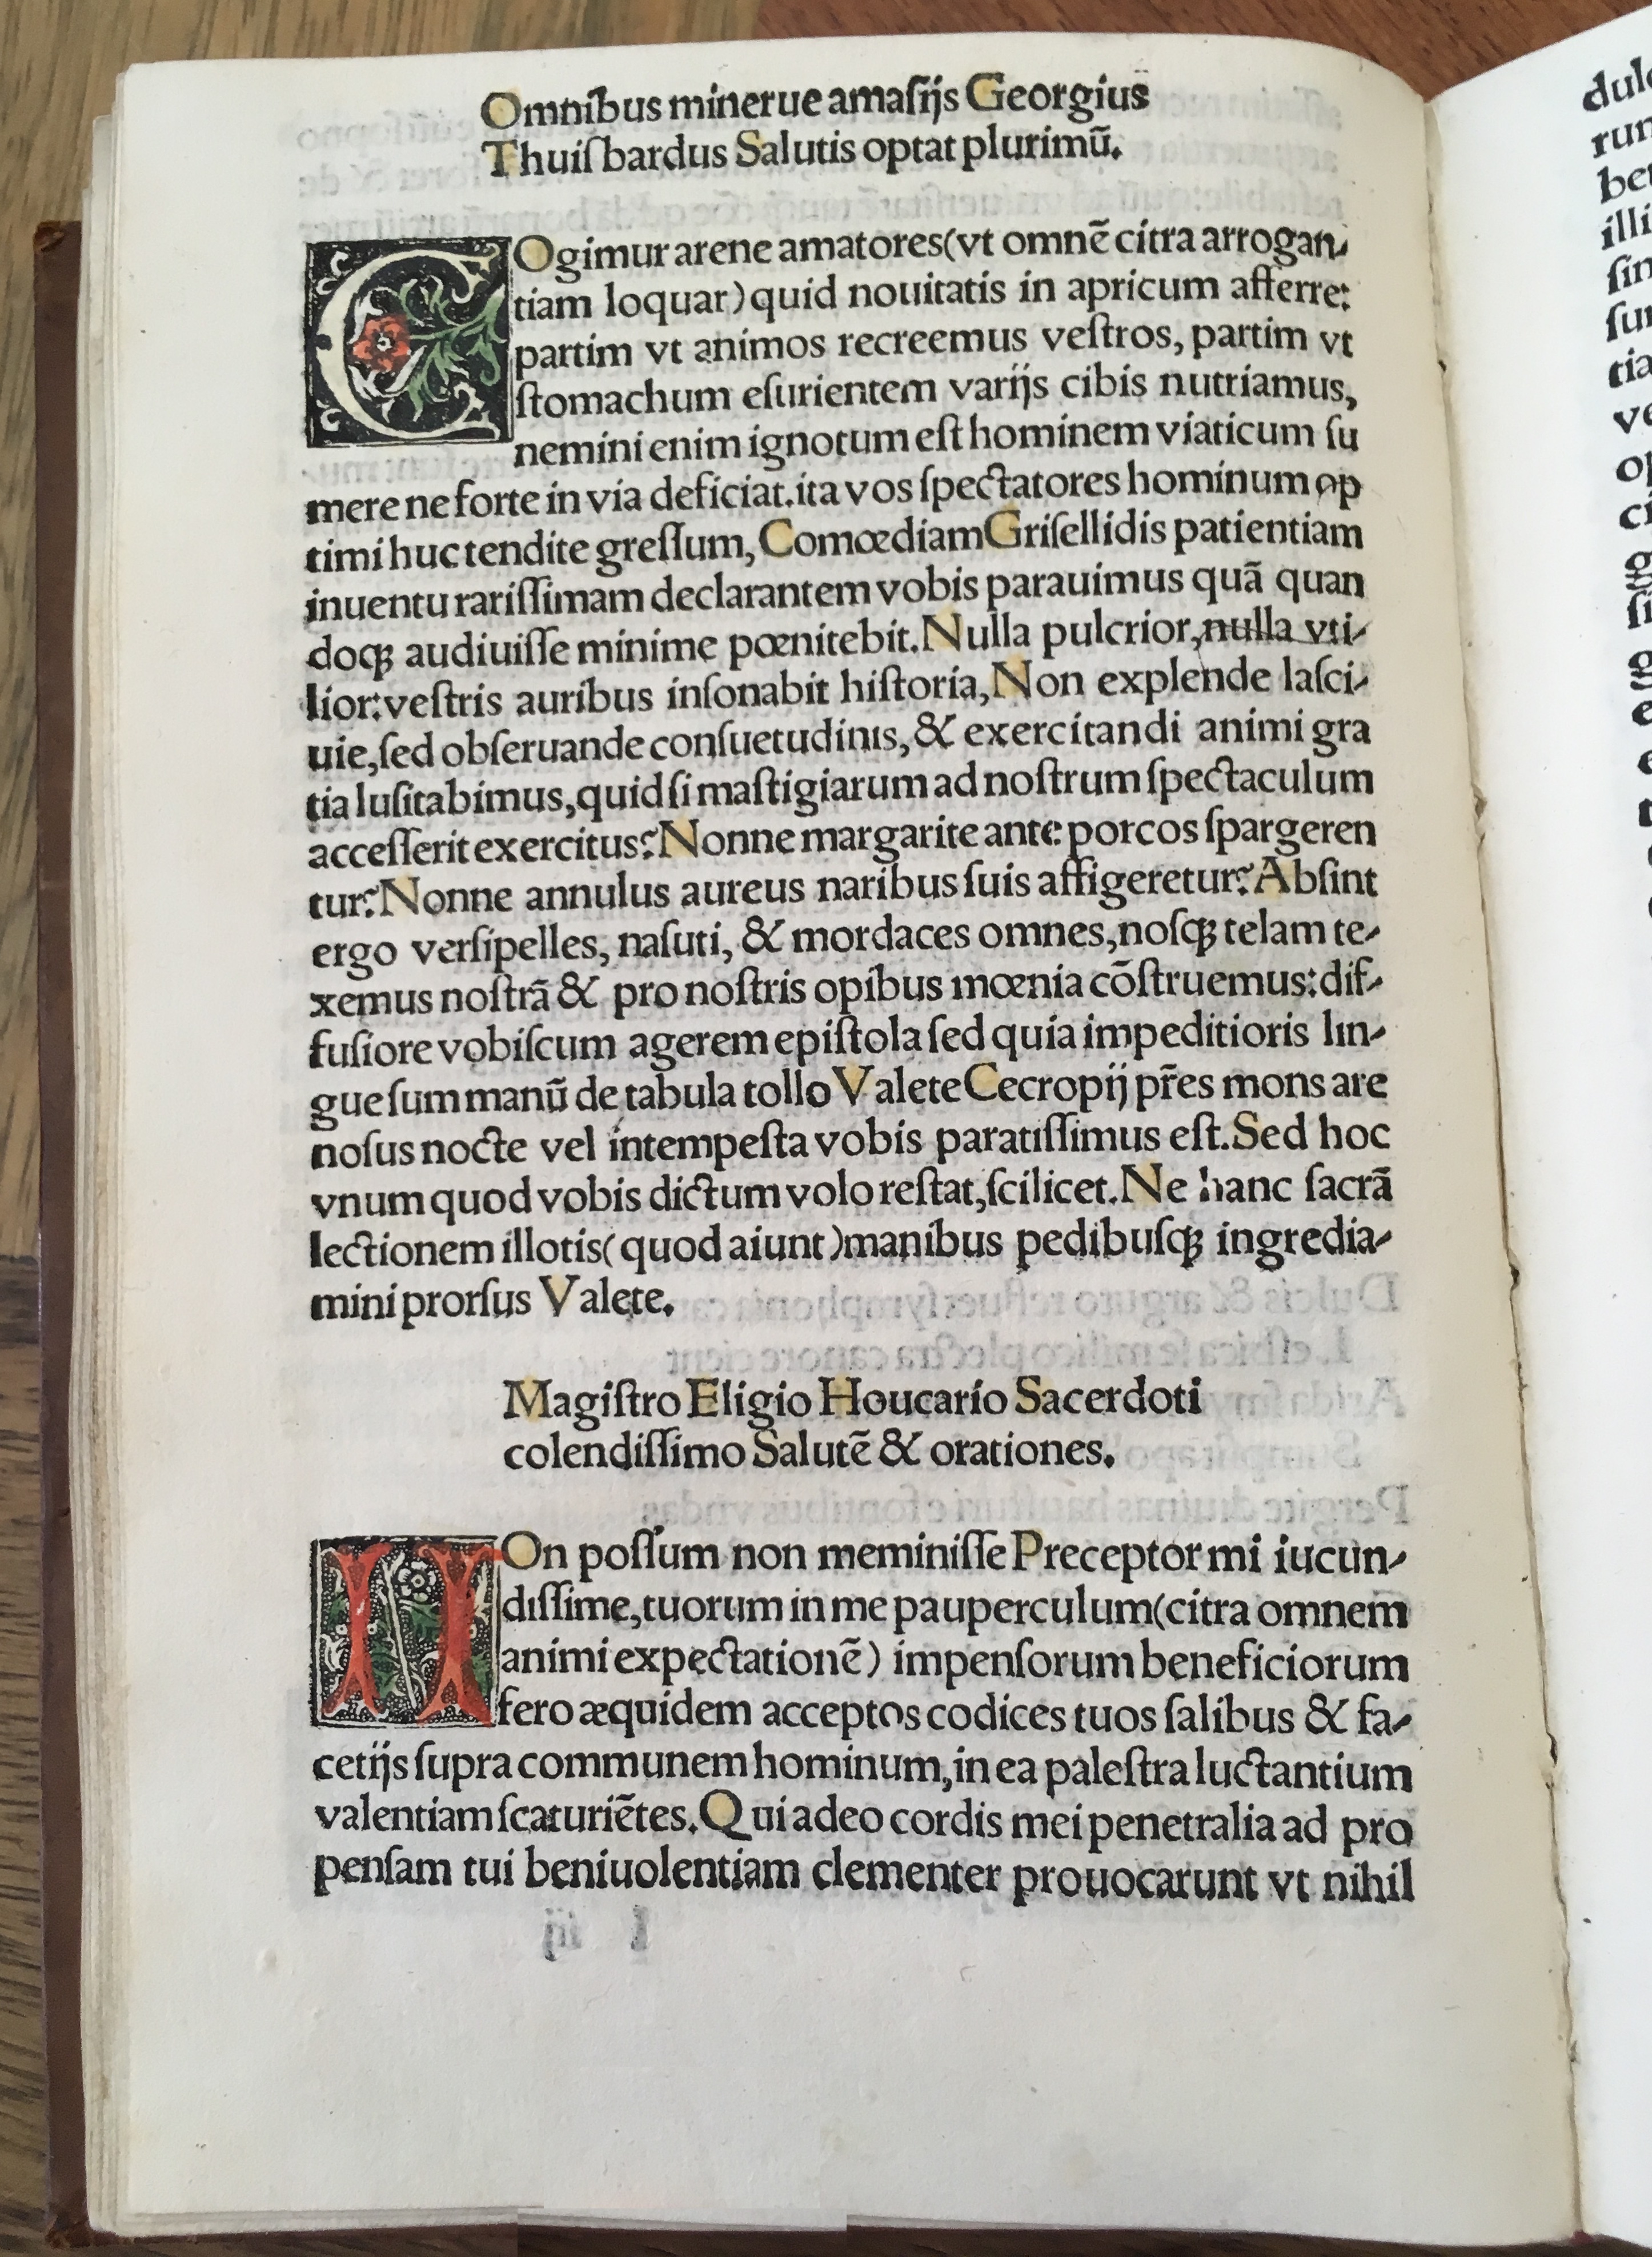 Omnibus minerue amaſijs Georgius
Thuiſbardus Salutis optat plurimū.
COgimur arene amatores(vt omnē citra arrogan-
tiam loquar) quid nouitatis in apricum afferre:
partim vt animos recreemus veſtros, partim vt
ſtomachum eſurientem varijs cibis nutriamus,
nemini enim ignotum eſt hominem viaticum ſu
mere ne forte in via deficiat. ita vos ſpectatores hominum op
timi huc tendite greſſum, Comœdiam Griſellidis patientiam
inuentu rariſſimam declarantem vobis parauimus quā quan
doqꝫ audiuiſſe minime pœnitebit. Nulla pulcrior, nulla vti-
lior: veſtris auribus inſonabit hiſtoria, Non explende laſci-
uie, ſed obſeruande conſuetudinis, & exercitandi animi gra
tia luſitabimus, quid ſi maſtigiarum ad noſtrum ſpectaculum
acceſſerit exercitus? Nonne margarite ante porcos ſpargeren
tur? Nonne annulus aureus naribus ſuis affigeretur? Abſint
ergo verſipelles, naſuti, & mordaces omnes, noſqꝫ telam te-
xemus noſtrā & pro noſtris opibus mœnia cōſtruemus: dif-
fuſiore vobiſcum agerem epiſtola ſed quia impeditioris lin-
gue ſum manū de tabula tollo Valete Cecropij pr̄es mons are
noſus nocte vel intempeſta vobis paratiſſimus eſt. Sed hoc
vnum quod vobis dictum volo reſtat, ſcilicet. Ne hanc ſacrā
lectionem illotis( quod aiunt )manibus pedibuſqꝫ ingredia-
mini prorſus Valete.
Magiſtro Eligio Houcario Sacerdoti
colendiſſimo Salutē & orationes.
NOn poſſum non meminiſſe Preceptor mi iucun-
diſſime, tuorum in me pauperculum(citra omnem
animi expectationē) impenſorum beneficiorum
fero æquidem acceptos codices tuos ſalibus & fa-
cetijs ſupra communem hominum, in ea paleſtra luctantium
valentiam ſcaturiētes. Qui adeo cordis mei penetralia ad pro
penſam tui beniuolentiam clementer prouocarunt vt nihil
dul
run
bet
illi
ſin
ſur
tia